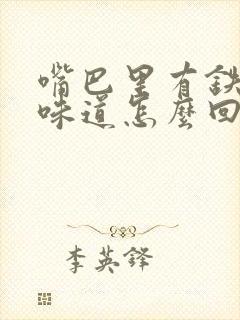 嘴巴里有鉄
味道怎麽回
李英鐸